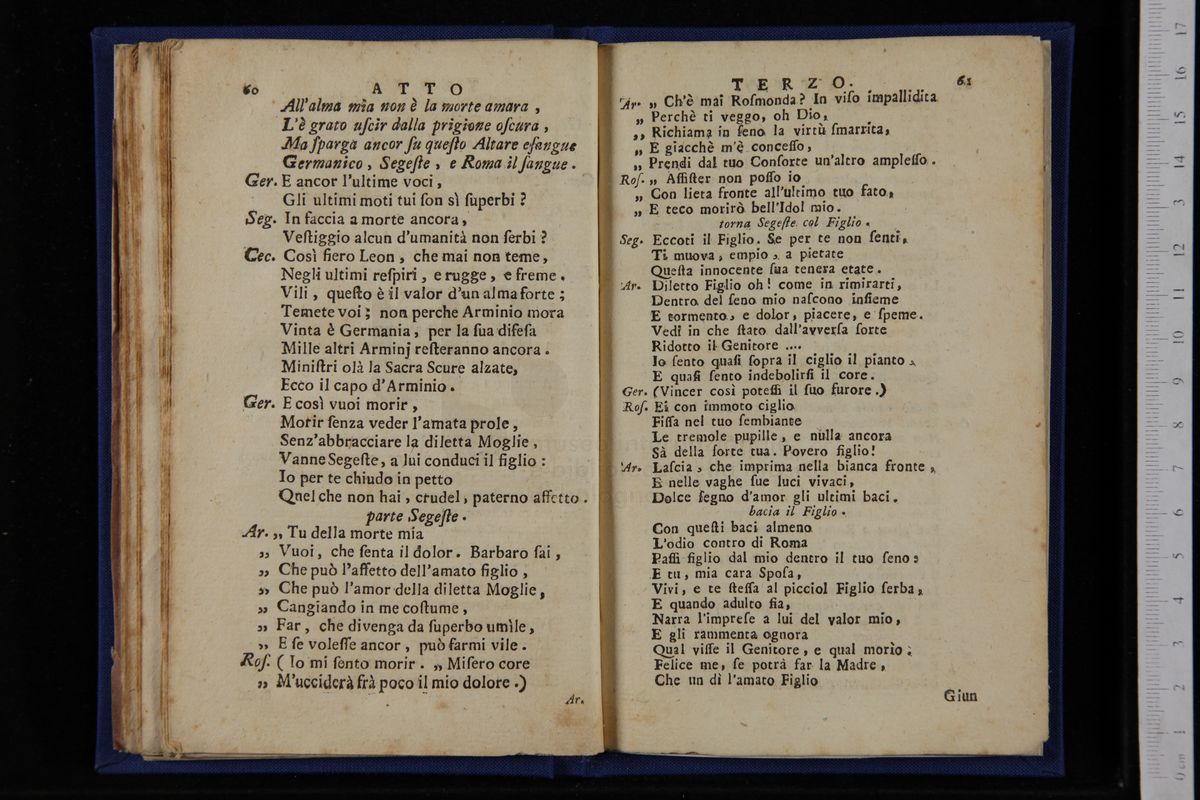 60 ATTO
All'alma mia non è la morte amara ,
L'è grato uſcir dalla prigione oſcura ,
Ma ſparga ancor ſu queſto Altare eſangue
Germanico , Segeſte , e Roma il ſangue .
Ger. E ancor l'ultime voci ,
Gli ultimi moti tui ſon sì ſuperbi ?
Seg. In faccia a morte ancora ,
Veſtiggio alcun d'umanità non ſerbi ?
Cec. Così fiero Leon , che mai non teme ,
Negli ultimi reſpiri , e rugge , e freme .
Vili , queſto è il valor d'un alma forte ;
Temete voi ; non perche Arminio mora
Vinta è Germania , per la ſua difeſa
Mille altri Arminj reſteranno ancora .
Miniſtri olà la Sacra Scure alzate,
Ecco il capo d'Arminio .
Ger. E così vuoi morir ,
Morir ſenza veder l'amata prole ,
Senz'abbracciare la diletta Moglie ,
Vanne Segeſte , a lui conduci il figlio :
Io per te chiudo in petto
Quel che non hai , crudel , paterno affetto .
parte Segeſte .
Ar. „ Tu della morte mia
„ Vuoi , che ſenta il dolor . Barbaro ſai ,
„ Che può l'affetto dell'amato figlio ,
„ Che può l'amor della diletta Moglie ,
„ Cangiando in me coſtume ,
„ Far , che divenga da ſuperbo umìle ,
„ E ſe voleſſe ancor , può farmi vile .
Roſ. ( Io mi ſento morir . „ Miſero core
„ M'ucciderà frà poco il mio dolore .)
Ar.
TERZO. 61
Ar. „ Ch'è mai Roſmonda ? In viſo impallidita
„ Perchè ti veggo, oh Dio,
„ Richiama in ſeno la virtù ſmarrita,
„ E giacchè m'è conceſſo ,
„ Prendi dal tuo Conſorte un'altro ampleſſo .
Roſ. „ Aſſiſter non poſſo io
„ Con lieta fronte all'ultimo tuo fato,
„ E teco morirò bell'Idol mio .
torna Segeſte col Figlio .
Seg. Eccoti il Figlio . Se per te non ſenti,
Ti muova , empio , a pietate
Queſta innocente ſua tenera etate .
Ar. Diletto Figlio oh ! come in rimirarti ,
Dentro del ſeno mio naſcono inſieme
E tormento , e dolor , piacere, e ſpeme .
Vedi in che ſtato dall'avverſa ſorte
Ridotto il Genitore ....
Io ſento quaſi ſopra il ciglio il pianto ,
E quaſi ſento indebolirſi il core .
Ger. (Vincer così poteſſi il ſuo furore .)
Roſ. Ei con immoto ciglio
Fiſſa nel tuo ſembiante
Le tremole pupille , e nulla ancora
Sà della ſorte tua . Povero figlio!
Ar. Laſcia , che imprima nella bianca fronte ,
E nelle vaghe ſue luci vivaci ,
Dolce ſegno d'amor gli ultimi baci .
bacia il Figlio .
Con queſti baci almeno
L'odio contro di Roma
Paſſi figlio dal mio dentro il tuo ſeno :
E tu , mia cara Spoſa ,
Vivi , e te ſteſſa al picciol Figlio ſerba ,
E quando adulto fia ,
Narra l'impreſe a lui del valor mio ,
E gli rammenta ognora
Qual viſſe il Genitore , e qual morìo ;
Felice me , ſe potrà far la Madre ,
Che un dì l'amato Figlio
Giun